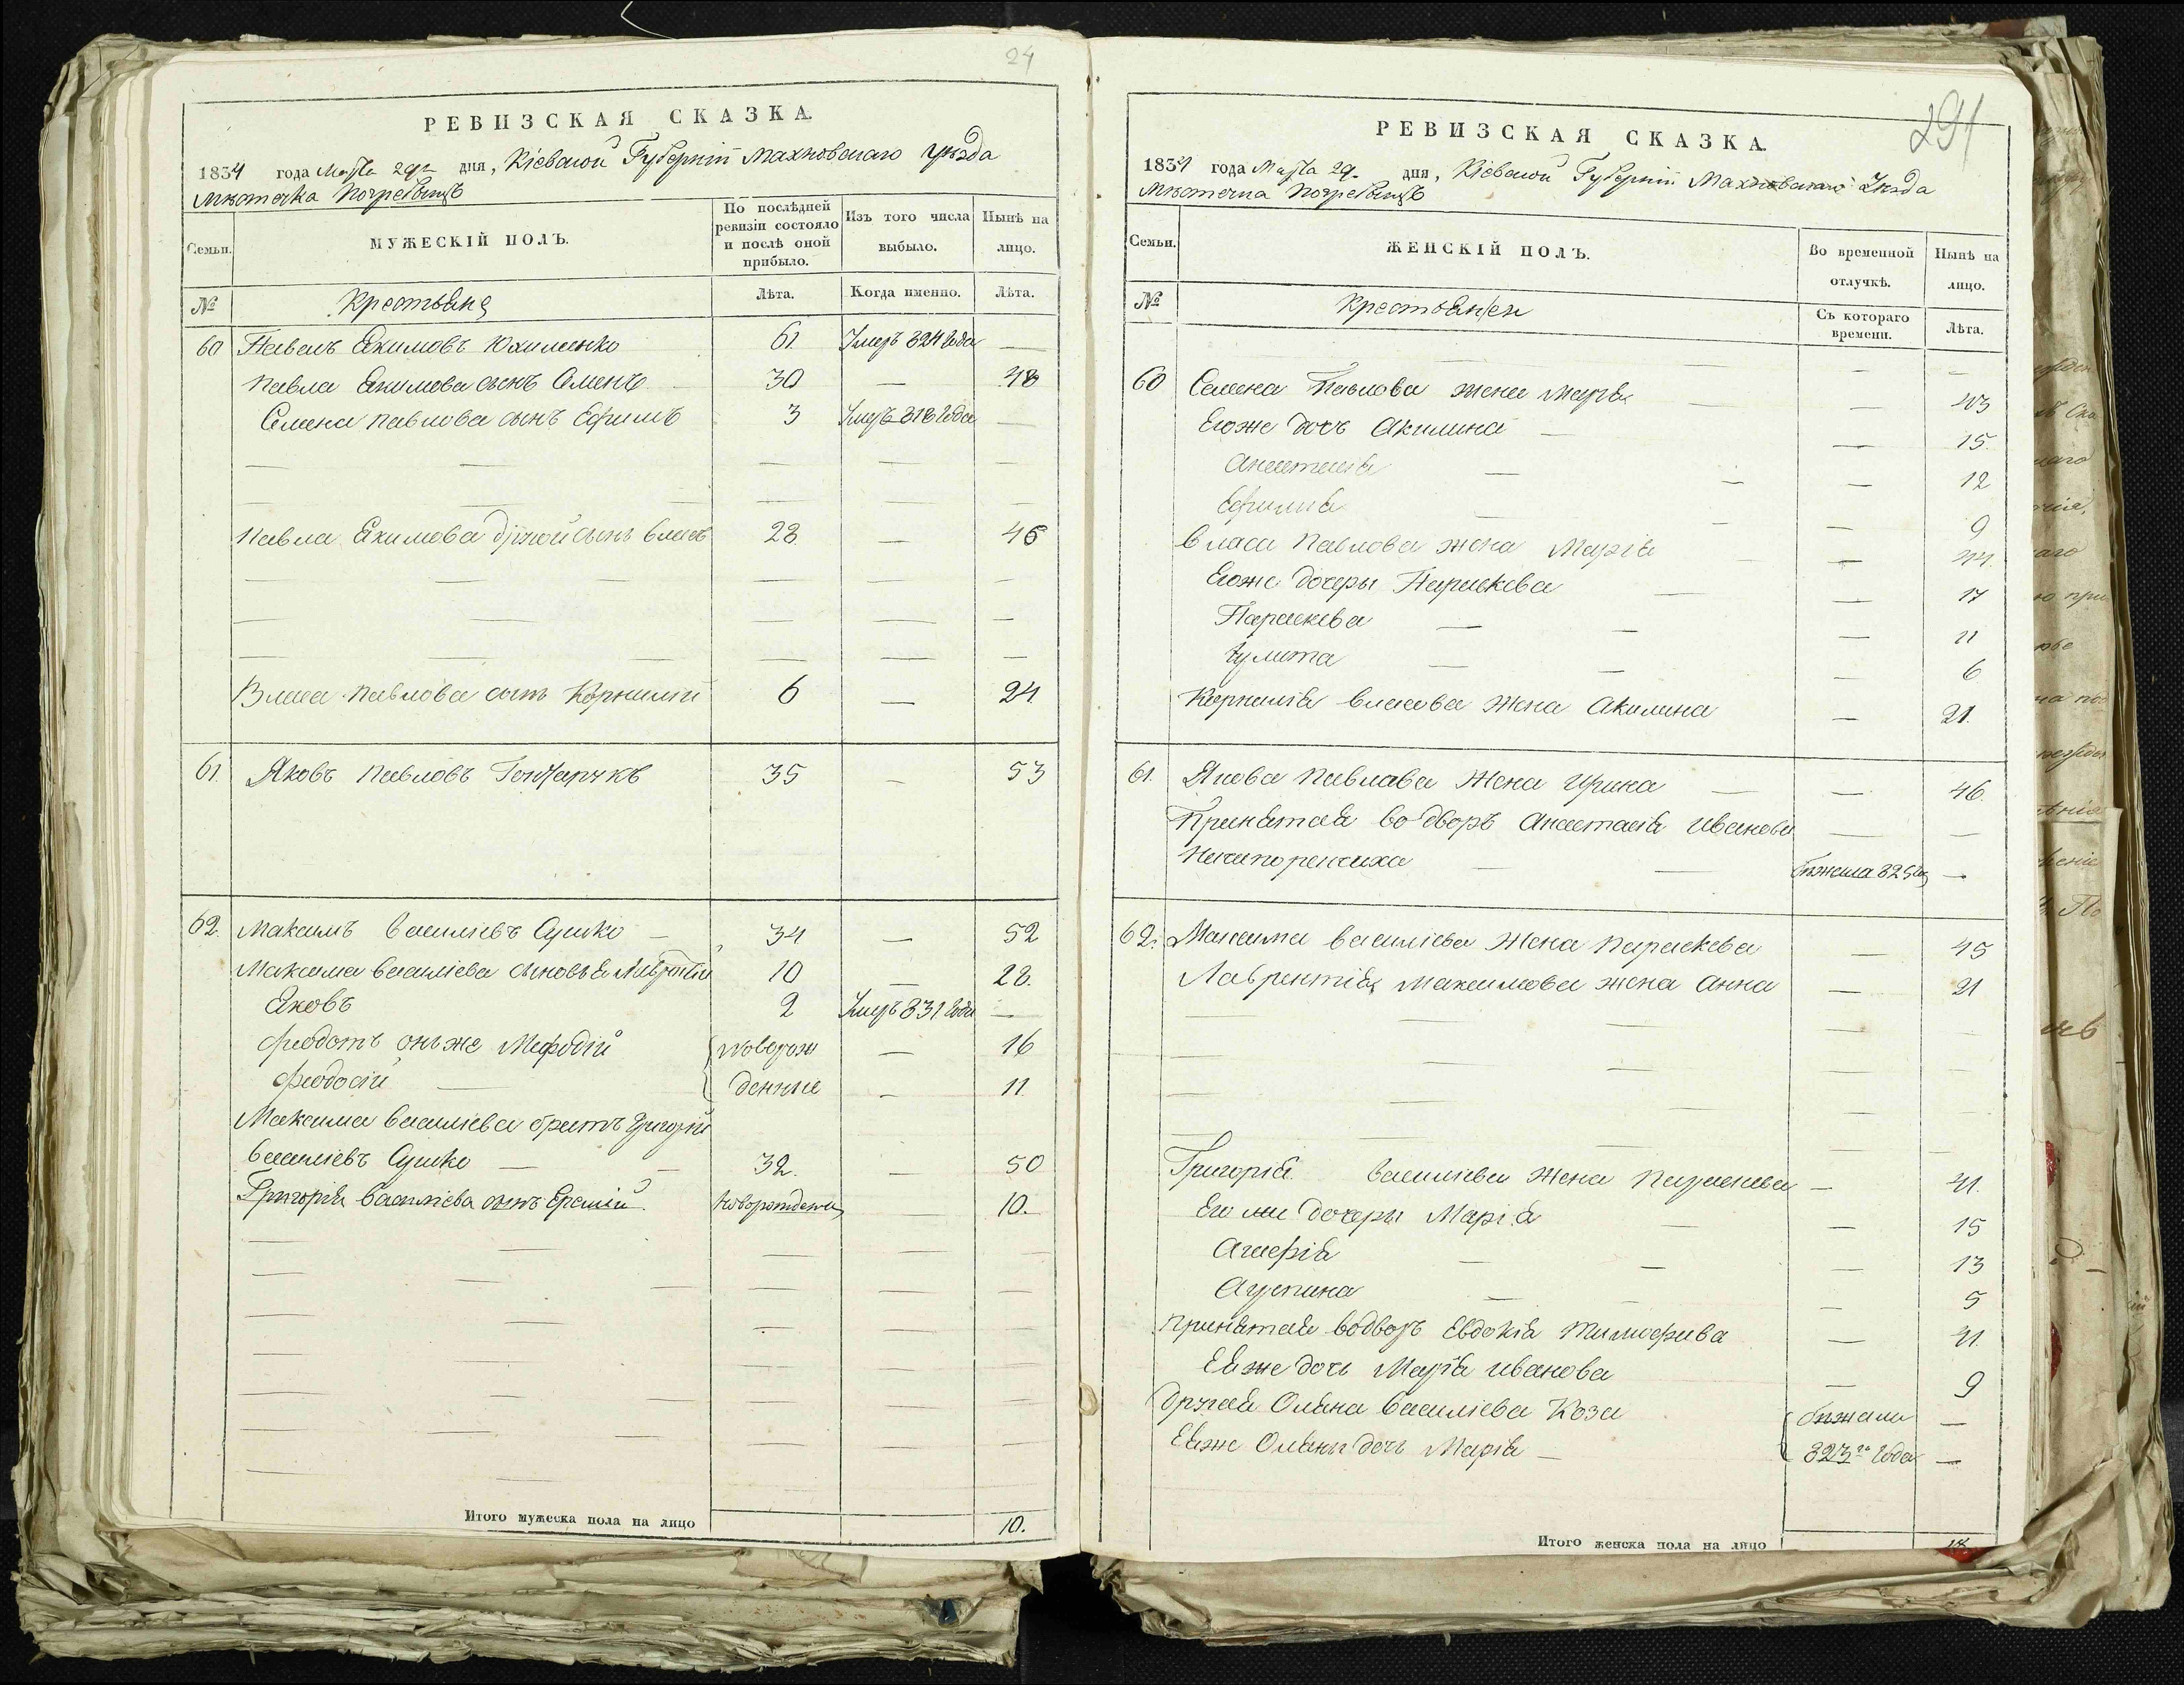 24
РЕВИЗСКАЯ СКАЗКА.
1834 года Марта 29 дня, Кіевской Губерніи Махновскаго уѣзда
Мѣстечка Погребищъ
Семьи.
МУЖЕСКІЙ ПОЛЪ.
По послѣдней ревизіи состояло и послѣ оной прибыло.
Изъ того числа выбыло.
Нынѣ на лицо.
№
Крестьяне
Лѣта.
Когда именно.
Лѣта.
60 Павелъ Екимовъ Юхименко 61. Умеръ 824 года —
Павла Екимова сынъ Семенъ 30 — 48
Семена Павлова сынъ Ефимъ 3 Умеръ 818 года —
Павла Екимова другой сынъ Власъ 28 — 46
Власа Павлова сынъ Корнилій 6 — 24
61. Яковъ Павловъ Гончарукъ 35 — 53
62. Максимъ Василіевъ Сушко — 34 — 52
Максима Василіева сыновья Лаврентій 10 — 28.
Яковъ 2 Умеръ 831 года —
Феодотъ онъ же Мефодій новорож — 16
Феодосій — денные — 11.
Максима Василіева братъ Григорій
Василіевъ Сушко — 32. — 50
Григорія Василіева сынъ Еремій. новорожденъ — 10.
Итого мужеска пола на лицо 10.
291
РЕВИЗСКАЯ СКАЗКА.
1834 года Марта 29 дня, Кіевской Губерніи Махновскаго уѣзда
Мѣстечка Погребищъ
Семьи.
ЖЕНСКІЙ ПОЛЪ.
Во временной отлучкѣ.
Нынѣ на лицо.
№
Крестьянки
Съ котораго времени.
Лѣта.
60 Семена Павлова жена Марья — 43
Его же дочь Акилина — 15.
Анастасія — 12
Ефимія — 9
Власа Павлова жена Марія — 44.
Его же дочеры Параскева — 17
Параскева — 11
Улита — 6
Корнилія Власова жена Акилина — 21.
61. Якова Павлова жена Ирина — 46.
Принятая во дворъ Анастасія Иванова —
Ничипоренчиха — бѣжала 825 —
62. Максима Василіева жена Параскева — 45
Лаврентія Максимова жена Анна — 21
Григорія Василіева жена Параскева — 41.
Его же дочеры Марія — 15
Агафія — 13
Агрипина — 5
Принятая во дворъ Евдокія Тимофеева — 41.
Ея же дочь Марія Иванова — 9
Другая Оляна Василіева Коза бѣжали —
Ея же Оляны дочь Марія — 823го года —
Итого женска пола на лицо